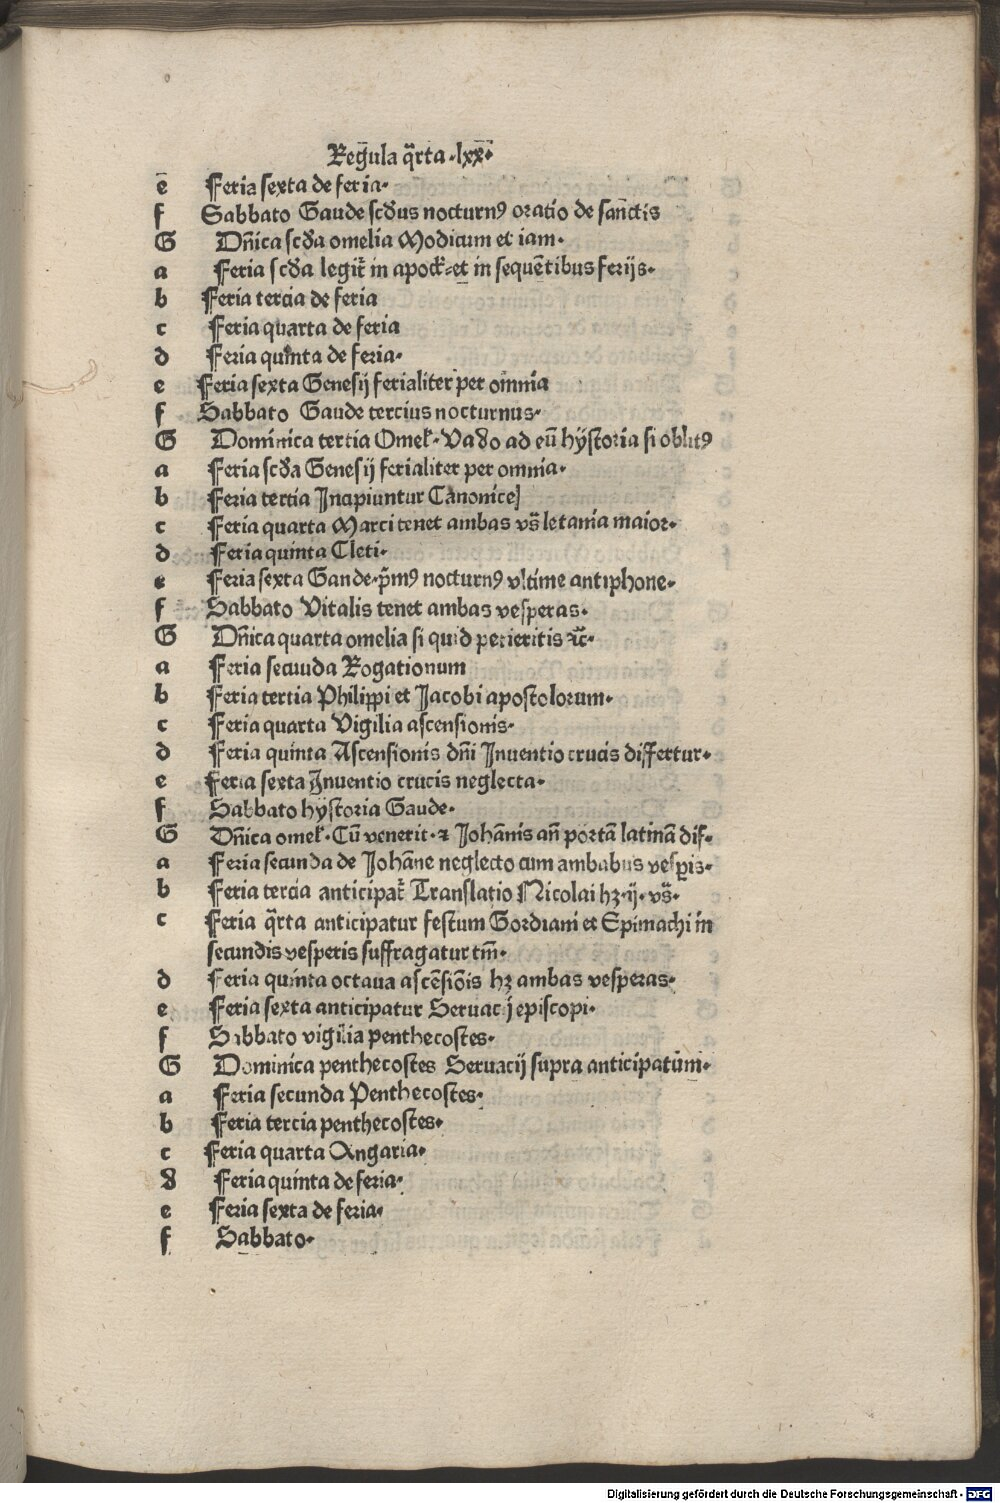 Reg̃ula q̃rta·lxx̄·
ē Feria sexta de feria·
f Sabbato Gaude scd̃us nocturnꝰ oratio de san̄ctis
G Dn̄ica scd̃a omelia Modicum et iam·
a Feria scd̃a legit̃ in apock̃·et in sequētibus ferijs·
b Feria tercia de feria
c Feria quarta de feria
d Feria quinta de feria·
e Feria sexta Genesij ferialiter per omnia
f Sabbato Gaude tercius nocturnus·
G Dominica tertia Omek̃·Vado ad eū hystoria si oblitꝰ
a Feria scd̃a Genesij ferialiter per omnia·
b Feria tertia Incipiuntur Canonice]
c Feria quarta Marci tenet ambas vs̃ letania maior·
d Feria quinta Cleti·
e Feria sexta Gande·p̄mꝰ nocturnꝰ vltime antiphone·
f Sabbato Vitalis tenet ambas vesperas·
G Dn̄ica quarta omelia si quid petieritis ꝛc̃·
a Feria secuuda Rogationum
b Feria tertia Philippi et Jacobi apostolorum·
c Feria quarta Vigilia ascensionis·
d Feria quinta Ascensionis dn̄i Inuentio crucis differtur·
e Feria sexta Inuentio crucis neglecta·
f Sabbato hystoria Gaude·
G Dn̄ica omek̃·Cū venerit·ꝛ Johānis an̄ portā latinā dif·
a Feria secunda de Johāne neglecto cum ambabus vesꝑis·
b Feria tercia anticipat̃ Translatio Nicolai hꝫ·ij·vs̃·
c Feria q̃rta anticipatur festum Gordiani et Epimachi in
secundis vesperis suffragatur tm̄·
d Feria quinta octaua ascēsiōis hꝫ ambas vesperas·
e Feria sexta anticipatur Seruacij episcopi·
f Sabbato vigilia penthecostes·
G Dominica penthecostes Seruacij supra anticipatūm·
a Feria secunda Penthecostes·
b Feria tercia penthecostes·
c Feria quarta Angaria·
d Feria quinta de feria·
e Feria sexta de feria·
f Sabbato·
Digitalisierung gefördert durch die Deutsche Forschungsgemeinschaft - DFG